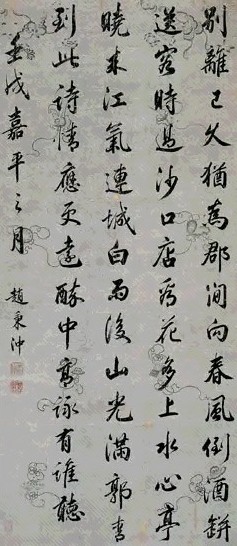 別離已久猶為郡閒向春風倒酒缾
送客時過沙口店看花多上水心亭
曉来江氣連城白雨後山光滿郭青
到此詩情應更遠醉中高詠有誰聽
壬戌嘉平之月
趙秉沖